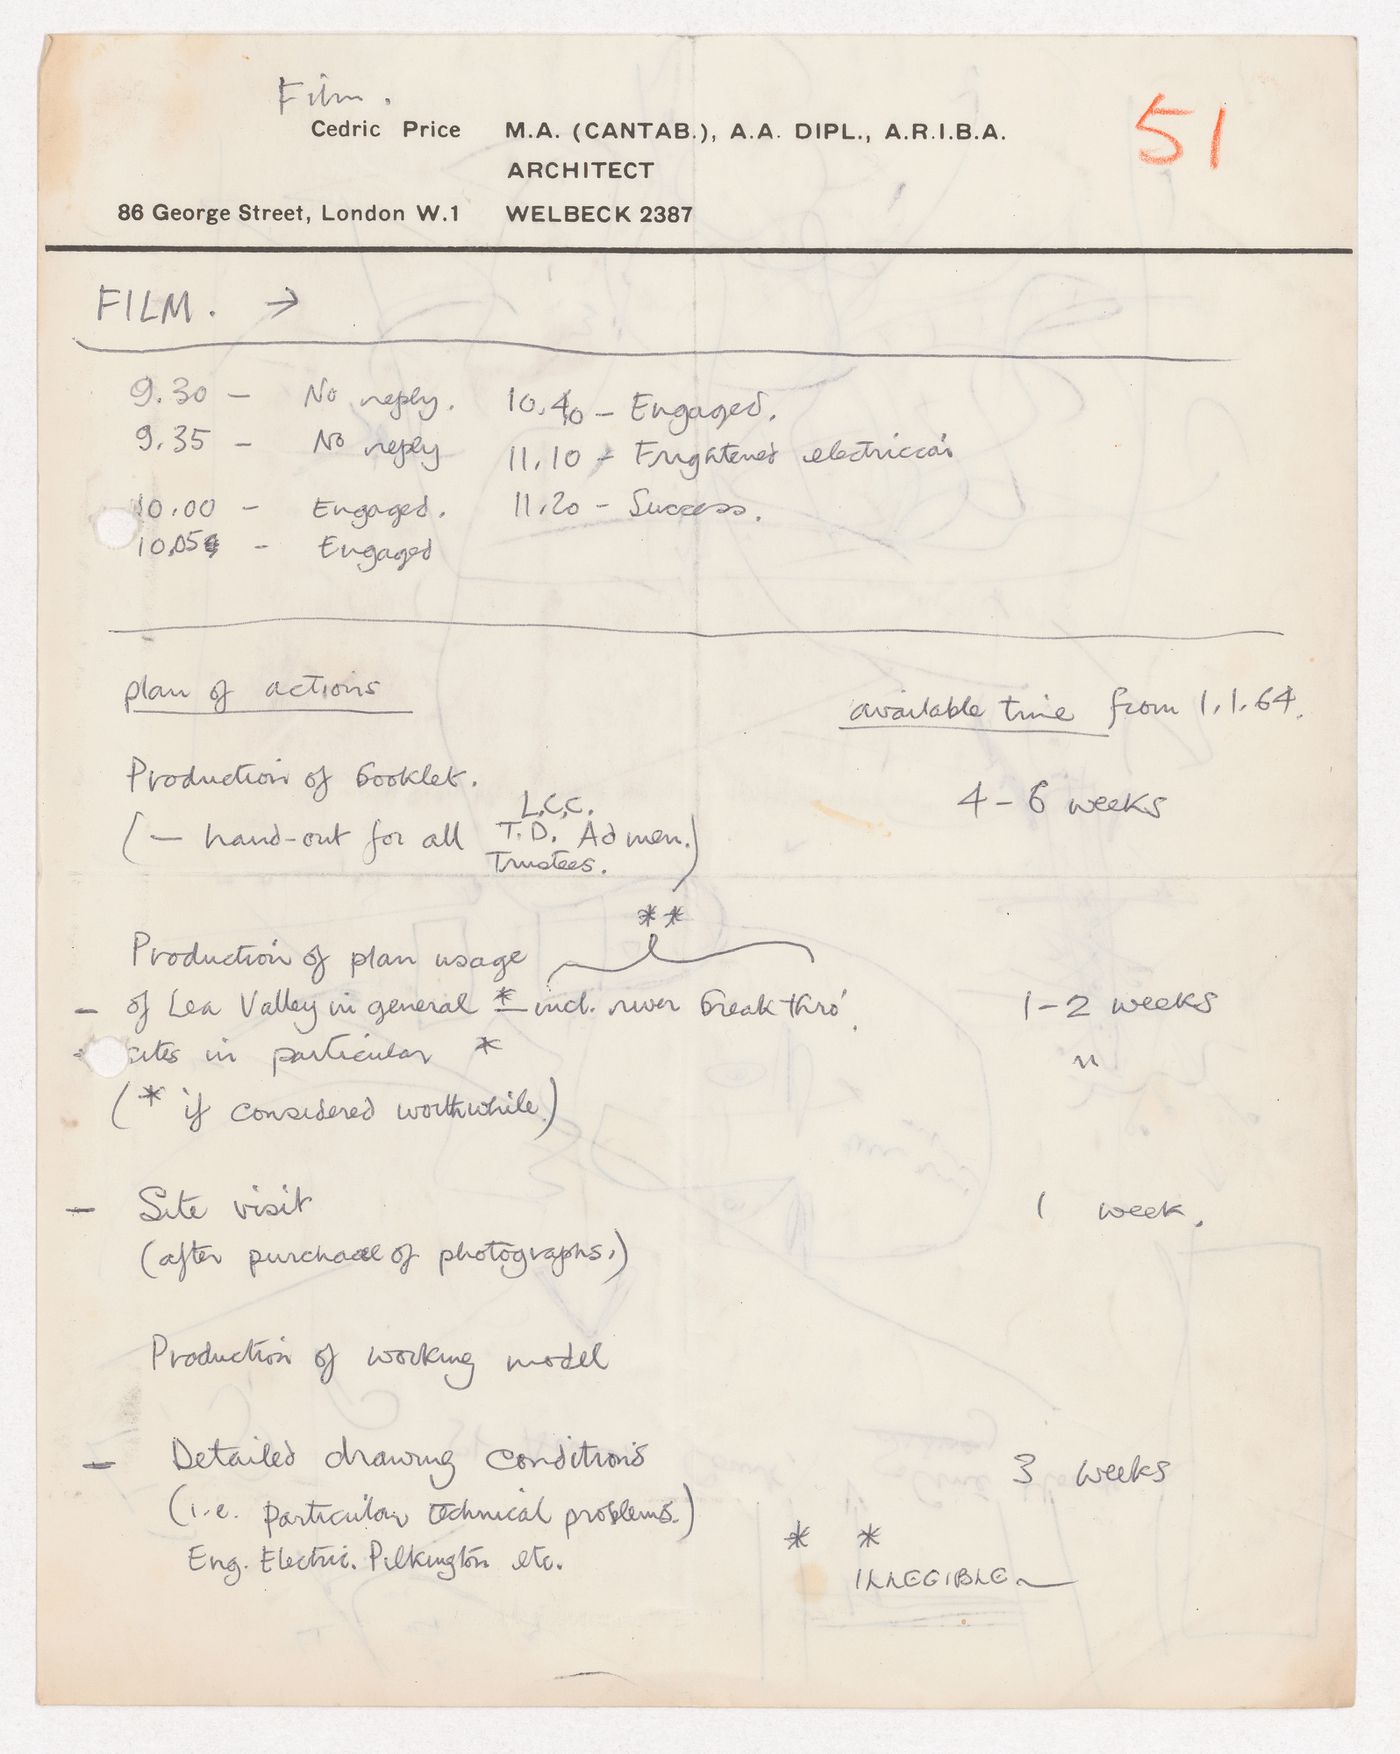 Film.
51
Cedric Price M.A. (CANTAB.), A.A. DIPL., A.R.I.B.A.
ARCHITECT
86 George Street, London W.1 WELBECK 2387
FILM. →
9.30 — No reply. 10.40 — Engaged.
9.35 — No reply 11.10 — Frightened electrician
10.00 — Engaged. 11.20 — Success.
10.05 — Engaged
plan of actions
available time from 1.1.64.
Production of booklet.
4 – 6 weeks
L.C.C.
(— hand-out for all T.D. Ad men.)
Trustees.
**
Production of plan usage
— of Lea Valley in general * — incl. river break thro'. 1 – 2 weeks
— sites in particular * "
(* if considered worthwhile.)
— Site visit 1 week.
(after purchase of photographs.)
Production of working model
— Detailed drawing conditions 3 weeks
(i.e. particular technical problems.)
* *
Eng. Electric. Pilkington etc.
ILLEGIBLE